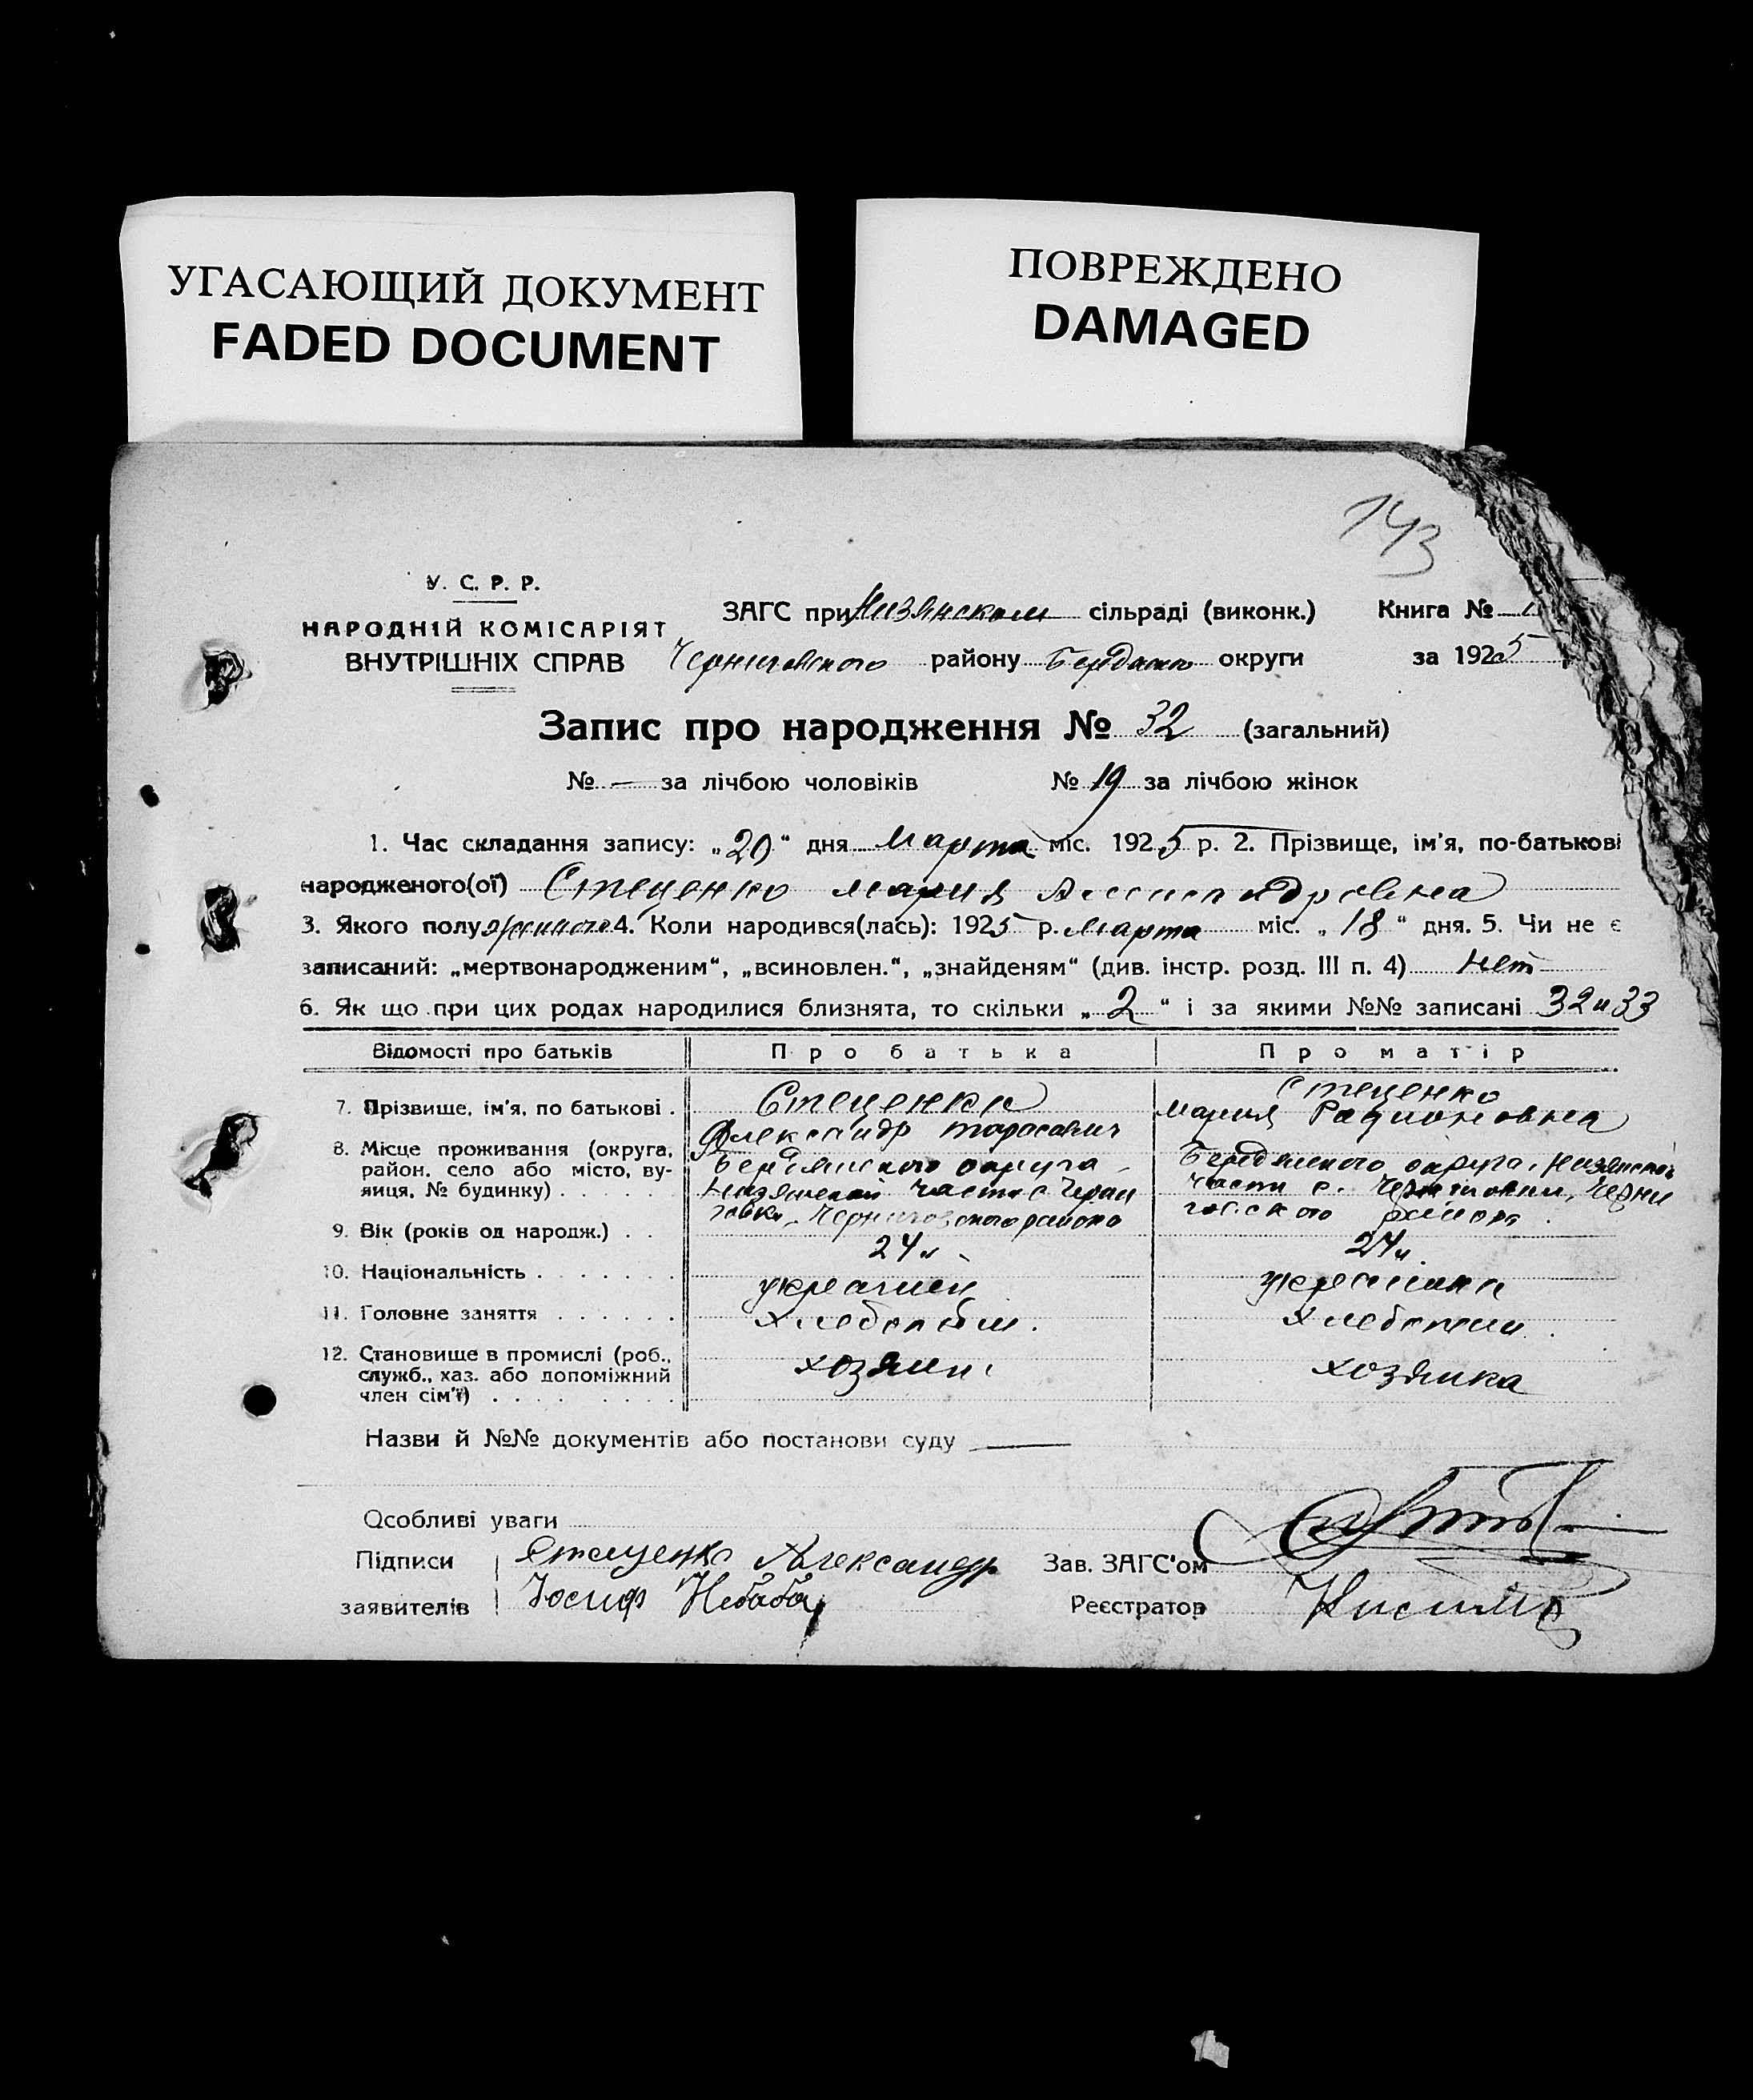 УГАСАЮЩИЙ ДОКУМЕНТ
FADED DOCUMENT
ПОВРЕЖДЕНО
DAMAGED
143
У. С. Р. Р.
НАРОДНІЙ КОМІСАРІЯТ
ВНУТРІШНІХ СПРАВ
ЗАГС при Низянском сільраді (виконк.) Книга №
Черниговского району Бердянс округи за 1925
Запис про народження № 32 (загальний)
№ — за лічбою чоловіків № 19 за лічбою жінок
1. Час складання запису: „20“ дня Марта міс. 1925 р. 2. Прізвище, ім'я, по-батькові
народженого(ої) Стеценко Мария Александровна
3. Якого полу 4. Коли народився(лась): 1925 р. Марта міс. „18“ дня. 5. Чи не є
записаний: „мертвонародженим“, „всиновлен.“, „знайденям“ (див. інстр. розд. III п. 4) Нет
6. Як що при цих родах народилися близнята, то скільки „2“ і за якими №№ записані 32 и 33
Відомості про батьків Про батька Про матір
7. Прізвище, ім'я, по батькові . Стеценко Александр Тарасович Стеценко Мария Радионовна
8. Місце проживання (округа, район, село або місто, вулиця, № будинку) . . . . . Бердянского округа Низянской части с Черниговки Черниговского района Бердянского округа, Низянской части с. Черниговки, Черниговского района
9. Вік (років од народж.) . . 24 24
10. Національність . . . . . . . украинец украинка
11. Головне заняття . . . . . . хлебопаш. хлебопаш.
12. Становище в промислі (роб., служб., хаз. або допоміжний член сім'ї) . . . . . . . . хозяин хозяйка
Назви й №№ документів або постанови суду —
Особливі уваги
Підписи Стеценко Александр Зав. ЗАГС'ом
заявителів Юсиф Небаба Реєстратор